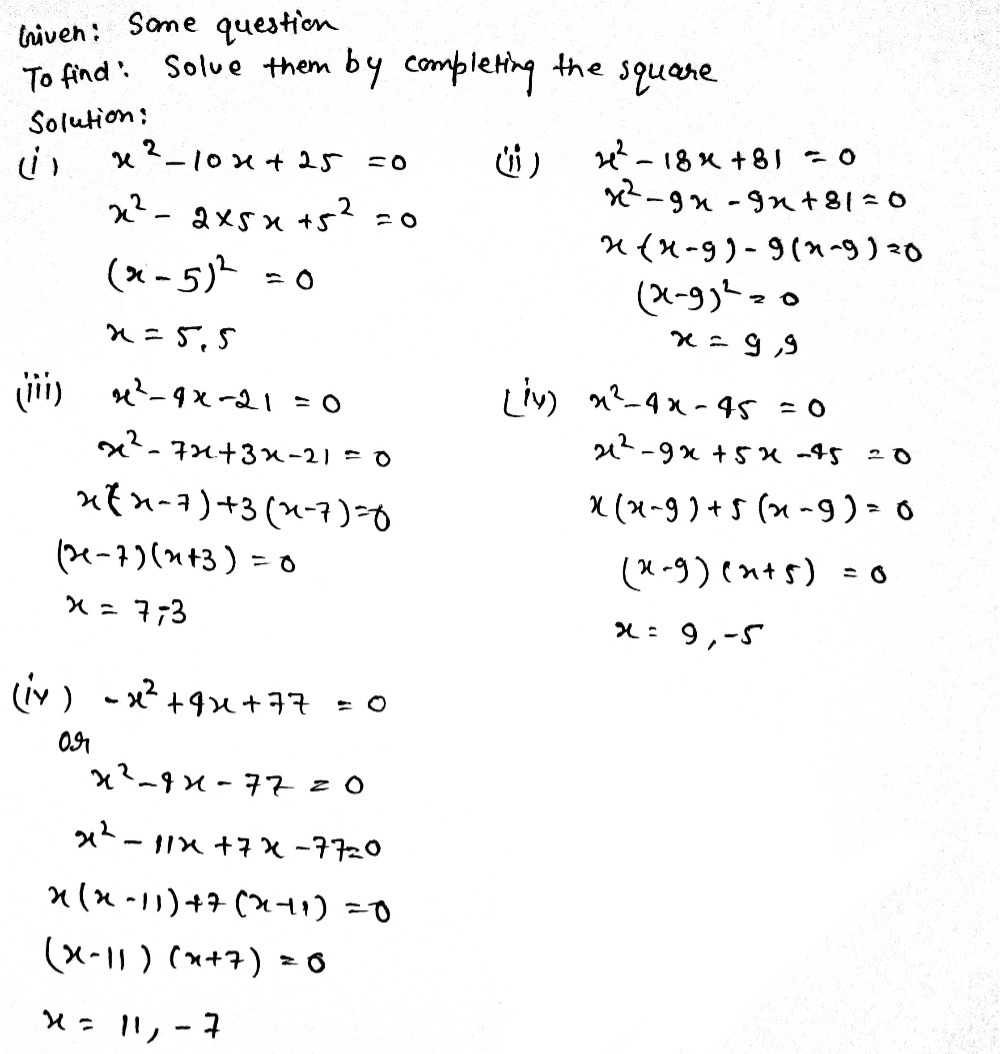 Given: Some question
To find: Solve them by completing the square
Solution:
(i) x² - 10x + 25 = 0
x² - 2×5x + 5² = 0
(x - 5)² = 0
x = 5, 5
(ii) x² - 18x + 81 = 0
x² - 9x - 9x + 81 = 0
x(x-9) - 9(x-9) = 0
(x-9)² = 0
x = 9, 9
(iii) x² - 4x - 21 = 0
x² - 7x + 3x - 21 = 0
x(x-7) + 3(x-7) = 0
(x-7)(x+3) = 0
x = 7, -3
(iv) x² - 4x - 45 = 0
x² - 9x + 5x - 45 = 0
x(x-9) + 5(x-9) = 0
(x-9)(x+5) = 0
x = 9, -5
(iv) -x² + 4x + 77 = 0
or
x² - 4x - 77 = 0
x² - 11x + 7x - 77 = 0
x(x-11) + 7(x-11) = 0
(x-11)(x+7) = 0
x = 11, -7